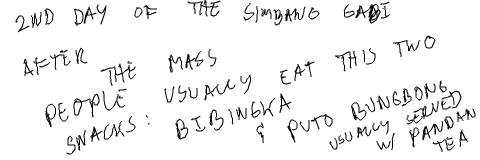 2ND DAY OF THE SIMBANG GABI
AFTER THE MASS
PEOPLE USUALLY EAT THIS TWO
SNACKS: BIBINGKA & PUTO BUNGBONG
USUALLY SERVED
W/ PANDAN
TEA